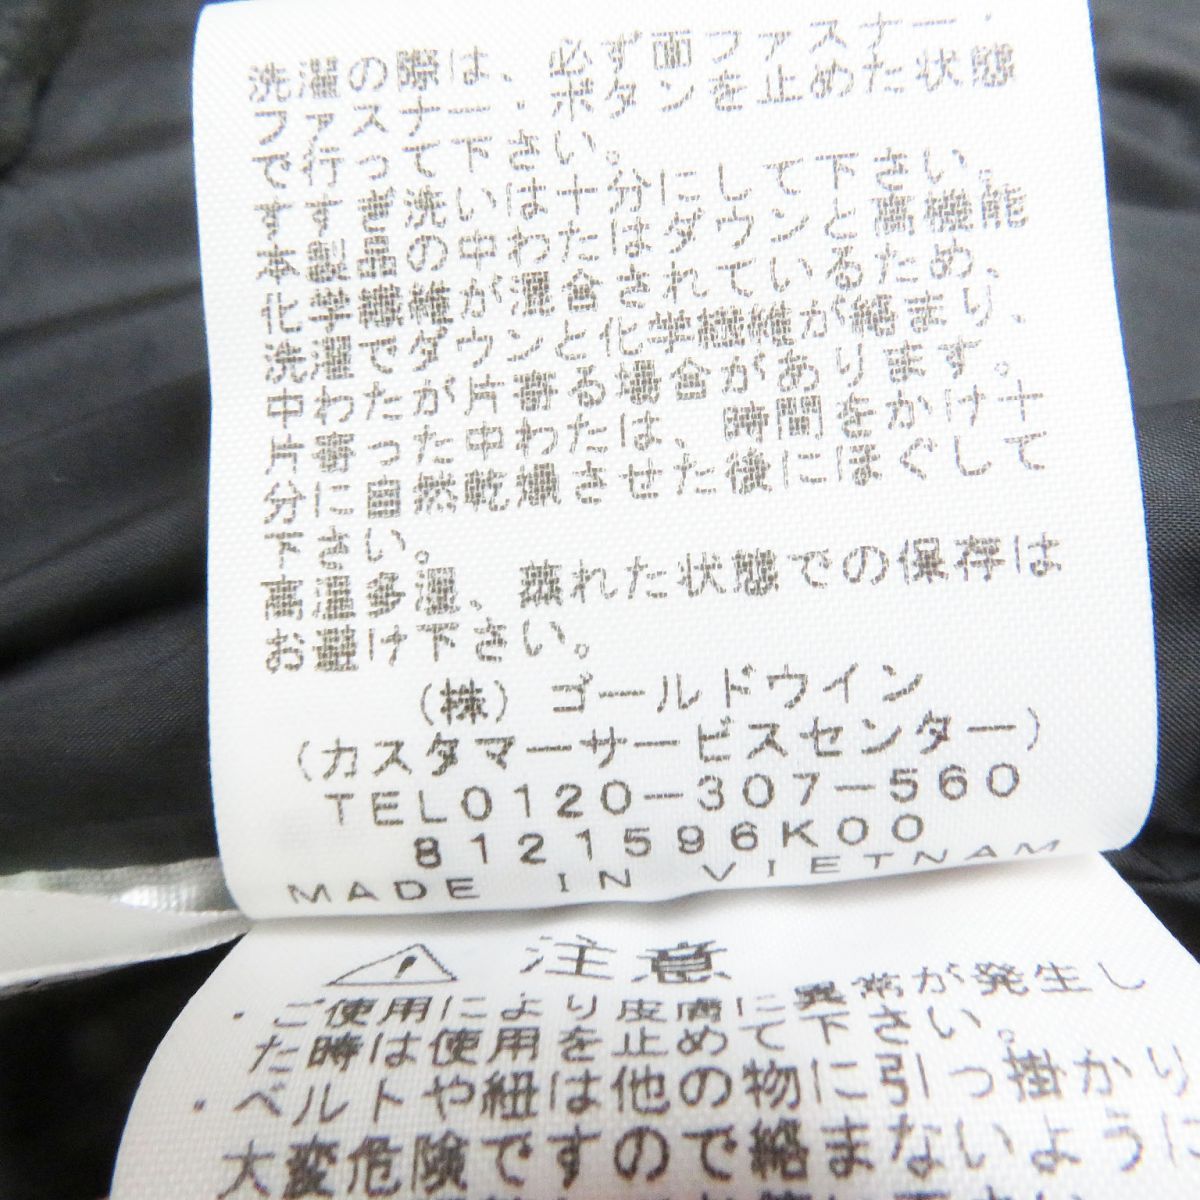 洗濯の際は、必ず面ファスナー・
ファスナー・ボタンを止めた状態
で行って下さい。
すすぎ洗いは十分にして下さい。
本製品の中わたはダウンと高機能
化学繊維が混合されているため、
洗濯でダウンと化学繊維が絡まり、
中わたが片寄る場合があります。
片寄った中わたは、時間をかけ十
分に自然乾燥させた後にほぐして
下さい。
高温多湿、蒸れた状態での保存は
お避け下さい。
(株) ゴールドウイン
(カスタマーサービスセンター)
TEL0120-307-560
8121596K00
MADE IN VIETNAM
⚠ 注意
・ご使用により皮膚に異常が発生し
た時は使用を止めて下さい。
・ベルトや紐は他の物に引っ掛かり
大変危険ですので絡まないように